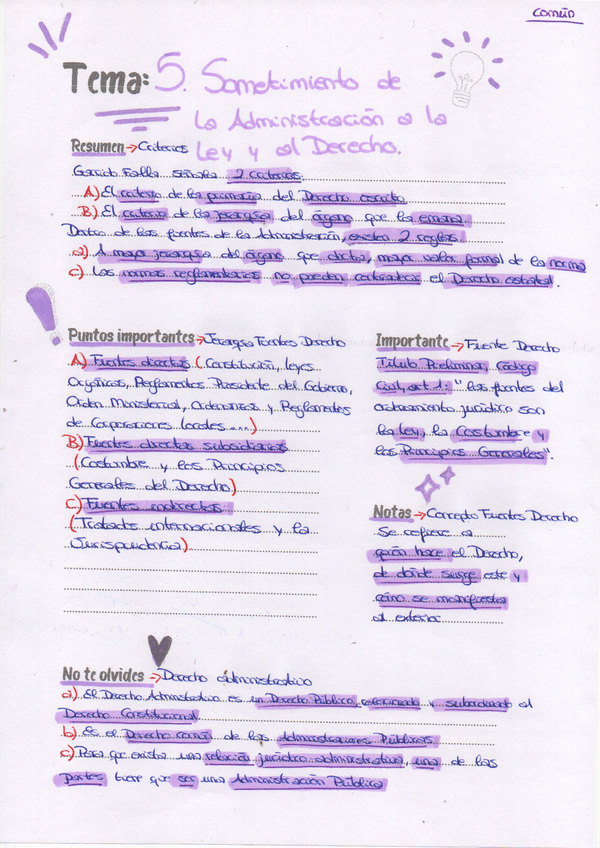 común
Tema: 5. Sometimiento de
la Administración a la
Ley y al Derecho.
Resumen → Criterios
Garrido Falla señala 2 criterios
A) El criterio de la primacía del Derecho escrito
B) El criterio de la jerarquía del órgano que la emana.
Dentro de las fuentes de la Administración, existen 2 reglas.
a) A mayor jerarquía del órgano que dicta, mayor valor formal de la norma
c) Las normas reglamentarias no pueden contradecir el Derecho estatal.
Puntos importantes → Jerarquía Fuentes Derecho
A) Fuentes directas (Constitución, leyes
Orgánicas, Reglamentos Presidente del Gobierno,
Orden Ministerial, Ordenanzas y Reglamentos
de Corporaciones locales...)
B) Fuentes directas subsidiarias
(Costumbre y los Principios
Generales del Derecho)
C) Fuentes indirectas:
(Tratados internacionales y la
Jurisprudencia)
Importante → Fuente Derecho
Título Preliminar, código
Civil, art 1: "las fuentes del
ordenamiento jurídico son
la ley, la Costumbre y
los Principios Generales".
Notas → Concepto Fuentes Derecho
Se refiere a
quién hace el Derecho,
de dónde surge este y
cómo se manifiesta
al exterior
No te olvides → Derecho administrativo
a) El Derecho Administrativo es un Derecho Público, relacionado y subordinado al
Derecho Constitucional
b) Es el Derecho común de las Administraciones Públicas.
c) Para que exista una relación jurídico administrativa, una de las
partes tiene que ser una Administración Pública